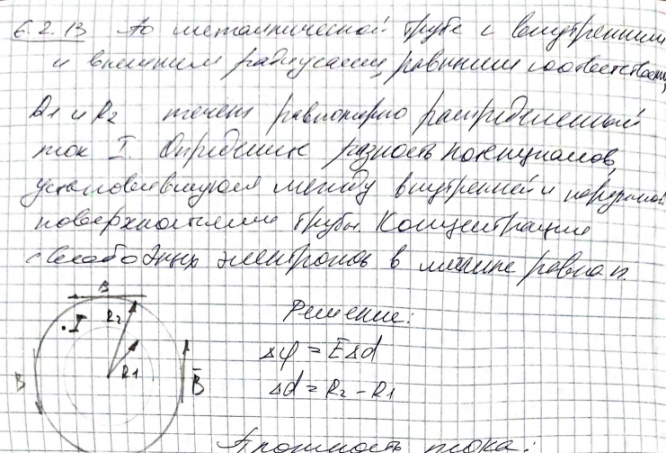 6.2.13 По металлической трубе с внутренним
и внешним радиусами, равными соответственно
R1 и R2 течёт равномерно распределенный
ток I. Определите разность потенциалов,
установившуюся между внутренней и наружной
поверхностями трубы. Концентрация
свободных электронов в металле равна n.
B
I
R2
R1
B
B
Решение:
Δφ = EΔd
Δd = R2 - R1
Плотность тока: